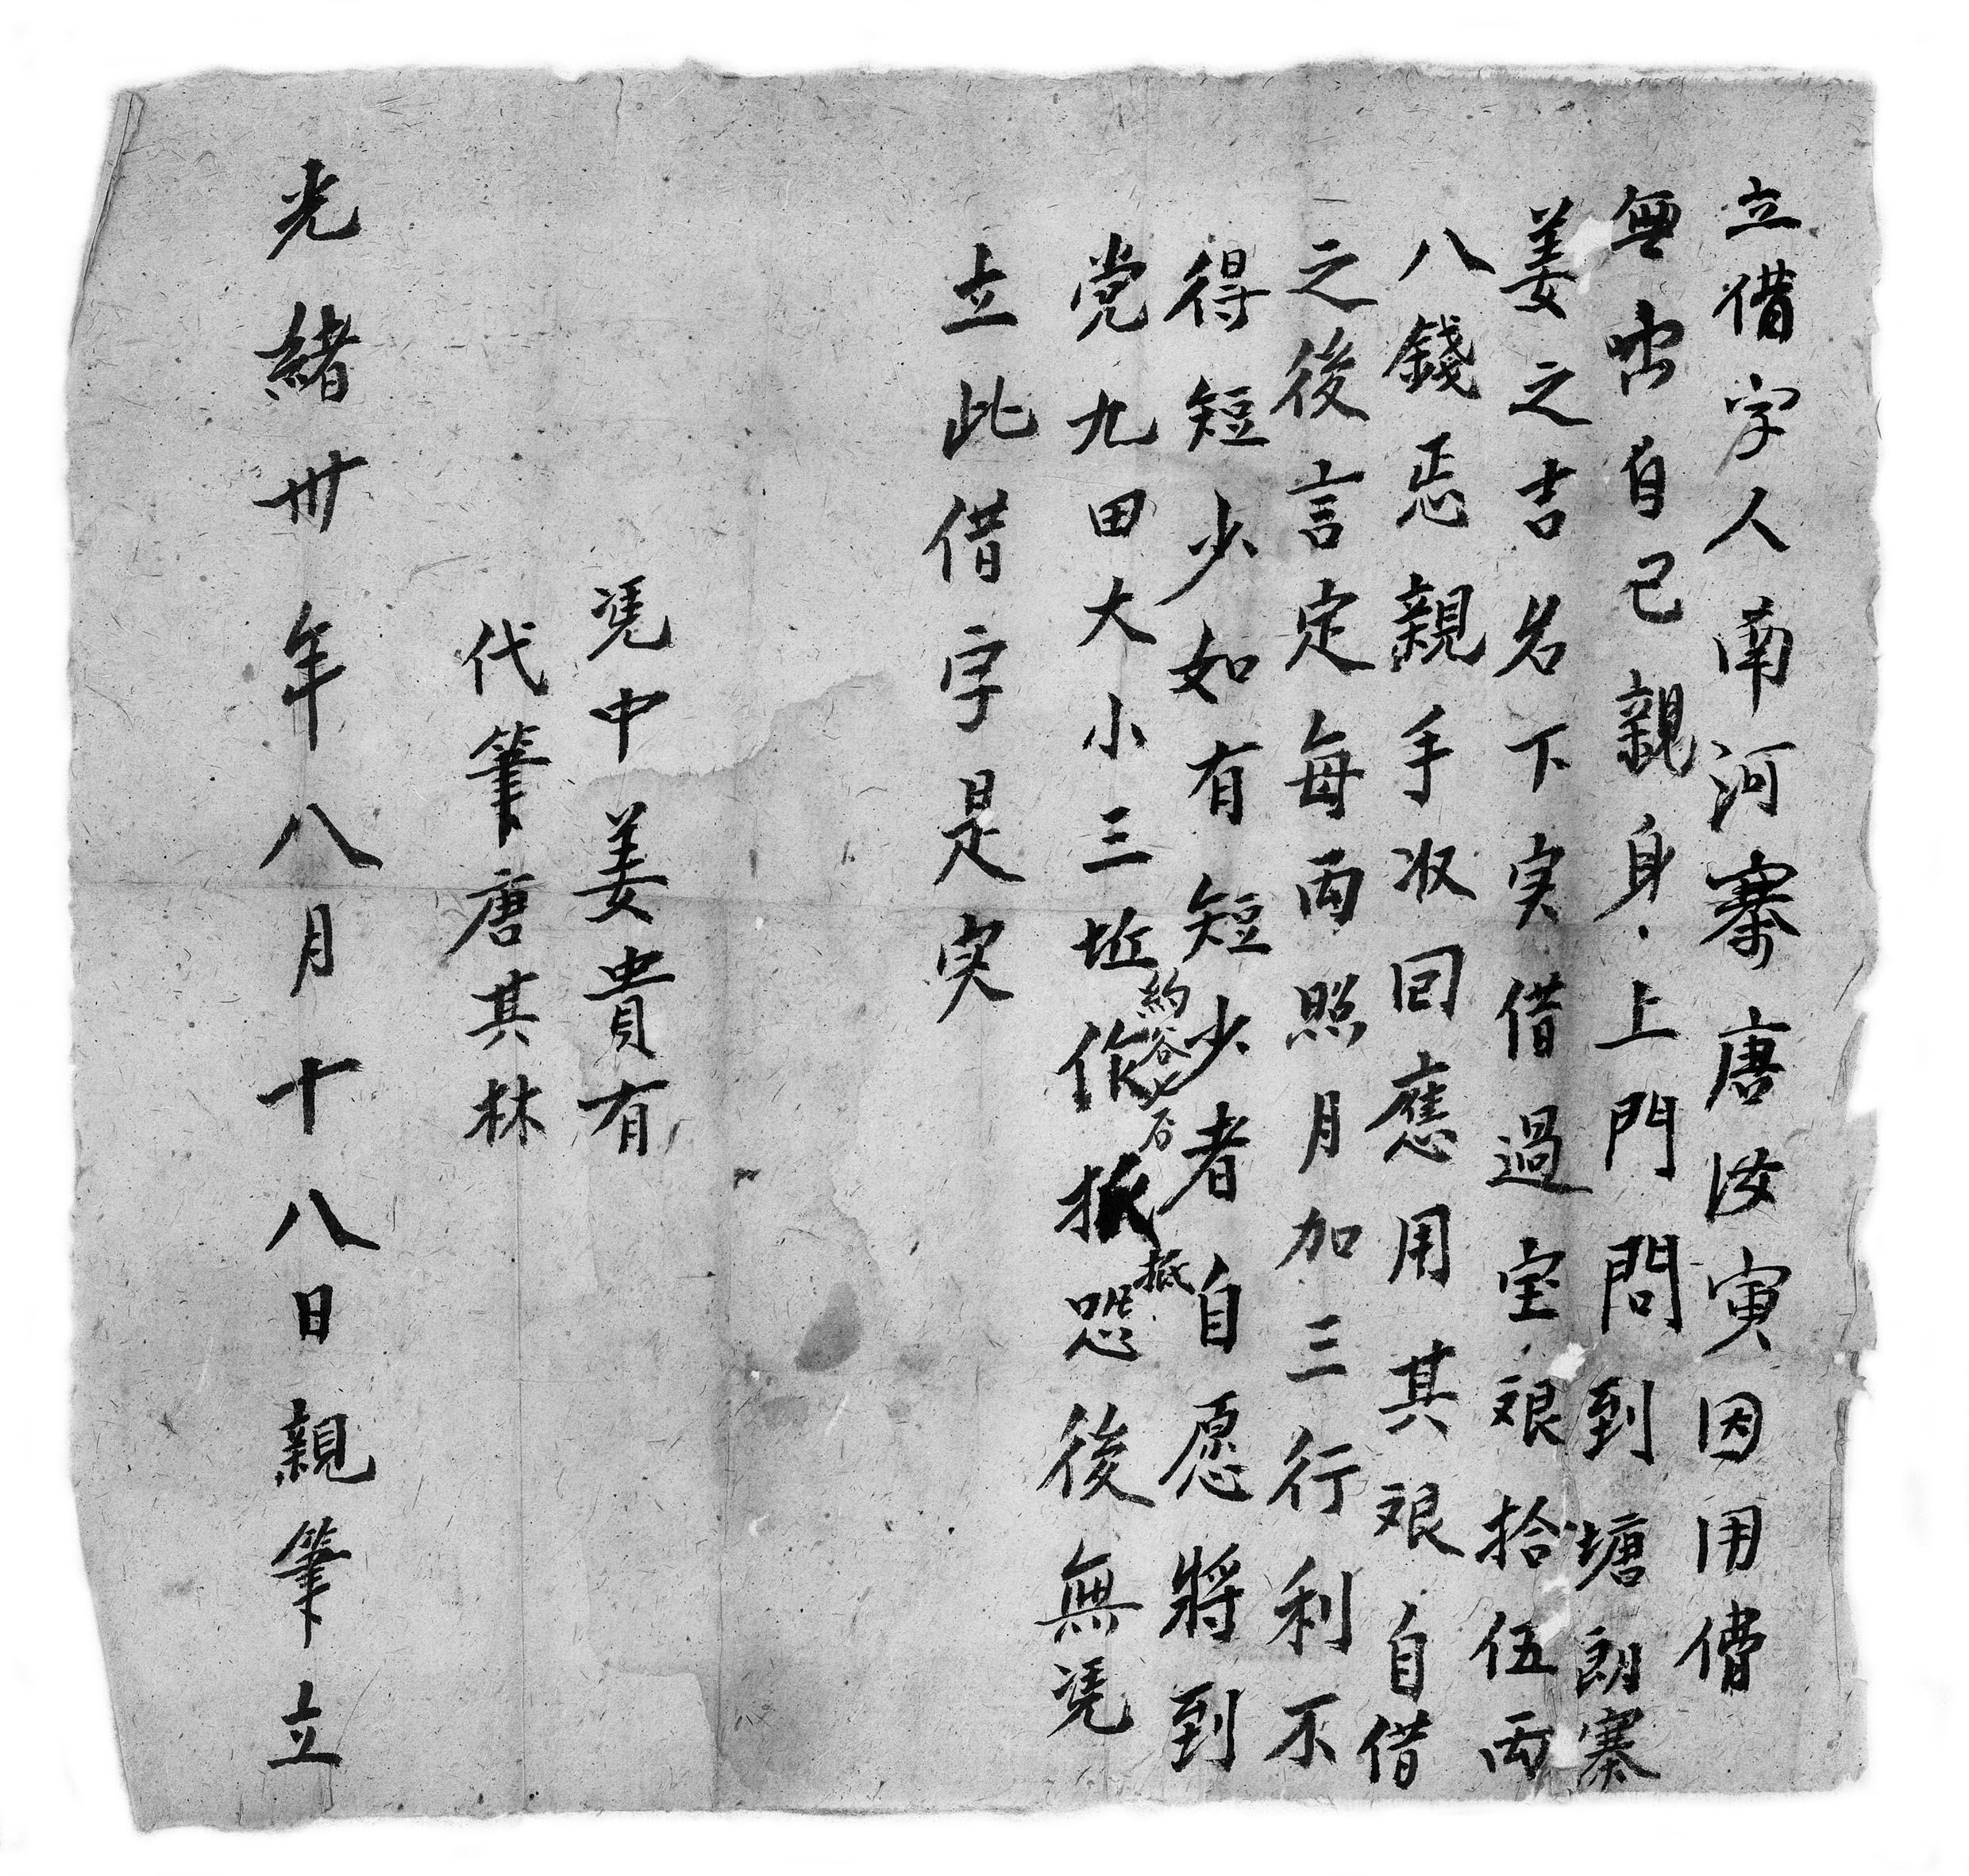 立借字人南河寨唐汝寅因用借
無出自己親身上門問到塘朗寨
姜之吉名下实借過宝艮拾伍両
八錢㤙親手收回應用其艮自借
之後言定每両照月加三行利不
得短少如有短少者自愿將到
党九田大小三坵作抵㤙後無凭
約谷七石
抵
立此借字是实
凭中姜貴有
代筆唐其林
光緒卅年八月十八日親筆立